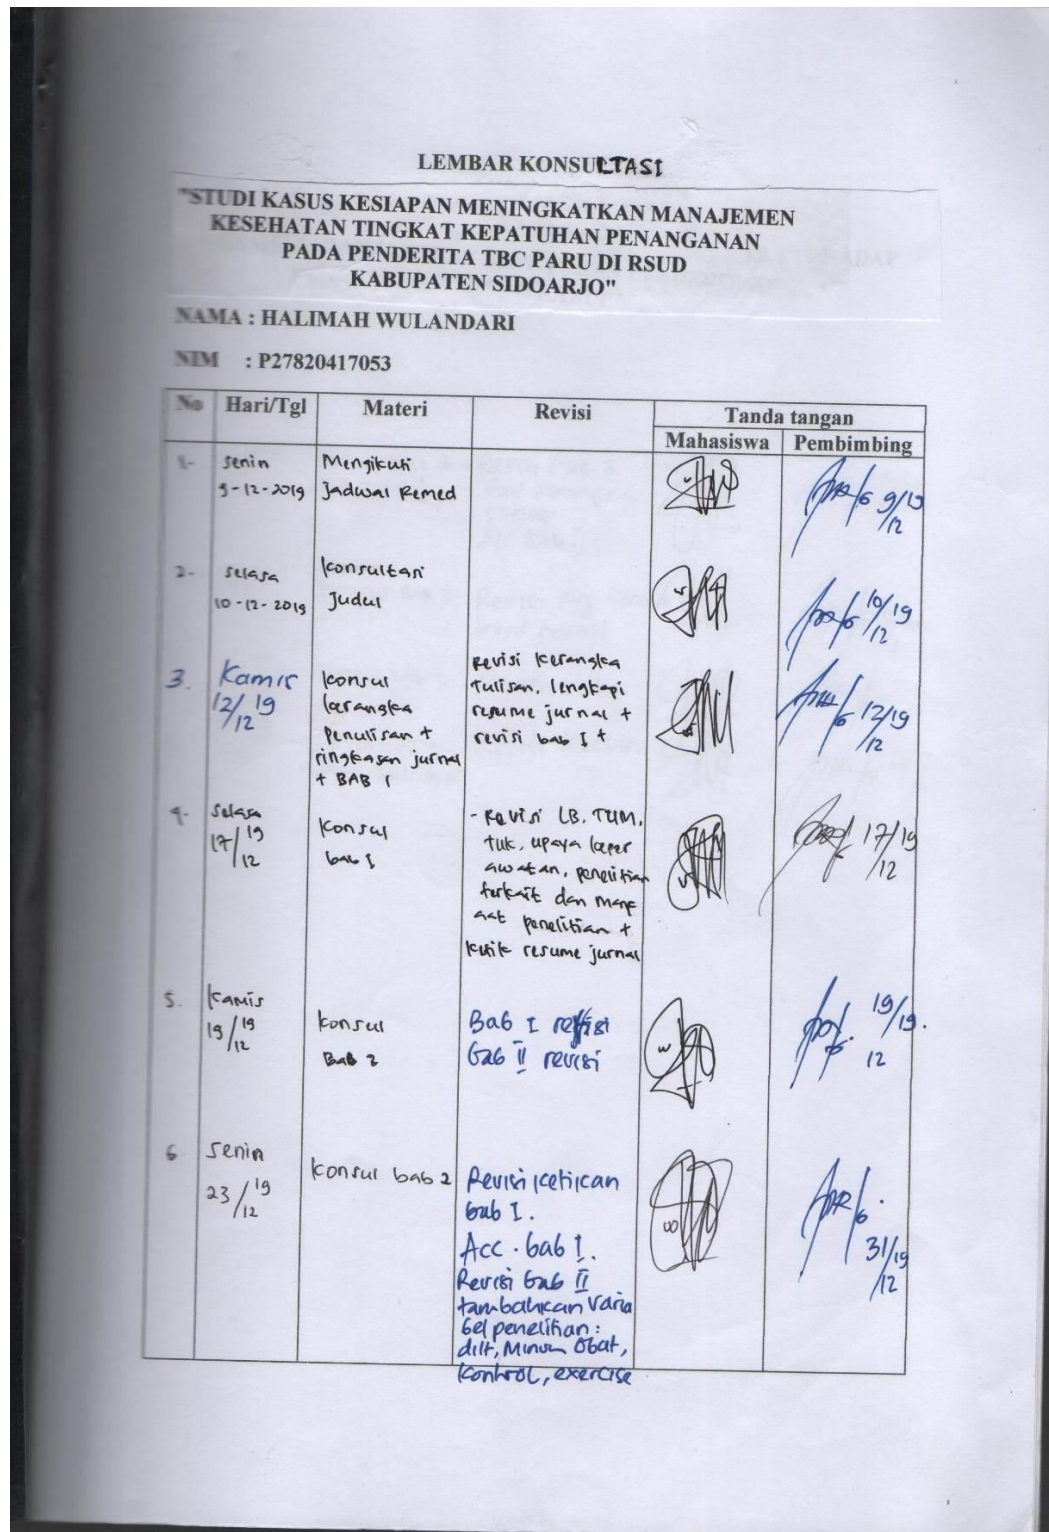 LEMBAR KONSULTASI
"STUDI KASUS KESIAPAN MENINGKATKAN MANAJEMEN
KESEHATAN TINGKAT KEPATUHAN PENANGANAN
PADA PENDERITA TBC PARU DI RSUD
KABUPATEN SIDOARJO"
NAMA : HALIMAH WULANDARI
NIM : P27820417053
No Hari/Tgl Materi Revisi Tanda tangan
Mahasiswa Pembimbing
1- Senin Mengikuti
9-12-2019 Jadwal Remed
9/19
/12
2- Selasa konsultasi
10-12-2019 Judul
10/19
/12
3. Kamis
12/19
/12
konsul
kerangka
penulisan +
ringkasan jurnal
+ BAB 1
Revisi kerangka
tulisan, lengkapi
resume jurnal +
revisi bab I +
12/19
/12
4- Selasa
17/19
/12
konsul
bab I
- Revisi LB, TUM,
tuk, upaya keper
awatan, penelitian
terkait dan manf
aat penelitian +
resume jurnal
17/19
/12
5. Kamis
19/19
/12
konsul
Bab 2
Bab I revisi
bab II revisi
19/19.
12
6 Senin
23/19
/12
konsul bab 2
Revisi ketikan
bab I.
Acc. bab I.
Revisi bab II
tambahkan varia
bel penelitian:
diit, Minum Obat,
kontrol, exercise
31/19
/12